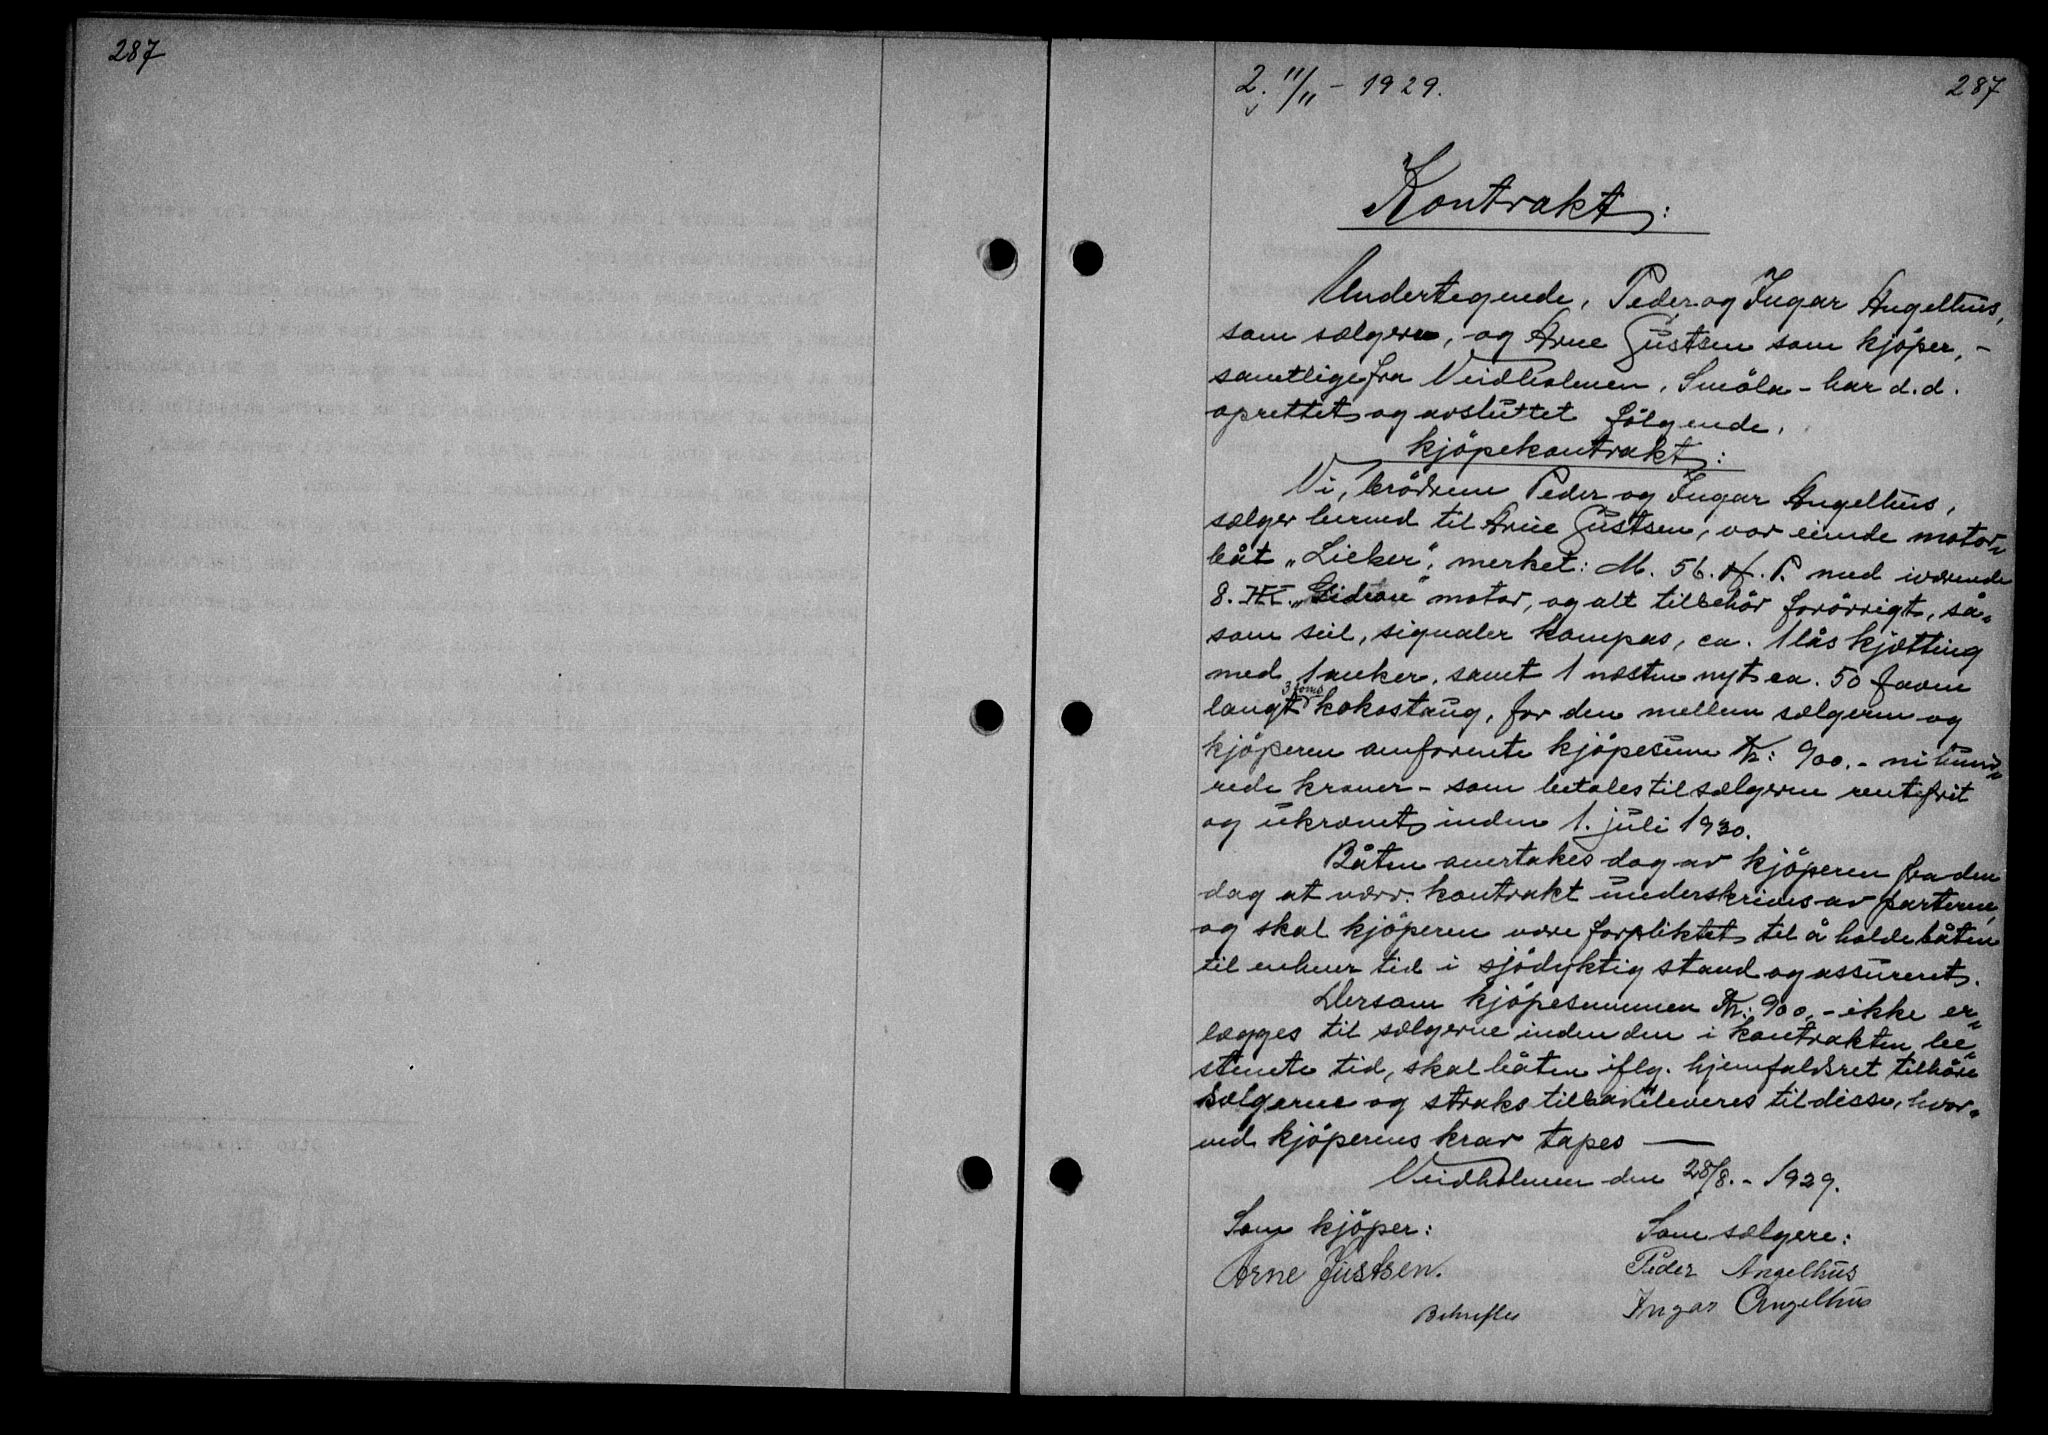 287
2. 11/11 - 1929.
287
Kontrakt:
Undertegnede, Peder og Ingar Angelhus,
som sælgere, og Arne Gustsen som kjöper, -
samtlige fra Veidholmen, Smöla - har d.d.
oprettet og avsluttet følgende,
kjöpekontrakt:
Vi, brödrene Peder og Ingar Angelhus,
sælger herved til Arne Gustsen, vor eiende motor-
båt "Lieker", merket: M. 56. H. P. med iværende
8. HK. "Gideon" motor, og alt tilbehör forörrigt, så-
som seil, signaler kompas, ca. 1 lås kjætting
med 1 anker, samt 1 næsten nyt ca. 50 favn
langt 3 toms kokostaug, for den mellem sælgerne og
kjöperen omforente kjöpesum Kr: 900.- ni hund-
rede kroner - som betales til sælgerne rentefrit
og ukrævet inden 1. juli 1930.
Båten overtakes dog av kjöperen fra den
dag at nærv. kontrakt underskrives av parterne,
og skal kjöperen være forpliktet til å holde båten
til enhver tid i sjödyktig stand og assureret.
Dersom kjöpesummen Kr: 900.- ikke er-
lægges til sælgerne inden den i kontrakten be-
stemte tid, skal båten iflg. hjemfaldsret tilhöre
sælgerne og straks tilbakeleveres til disse, hvor-
ved kjöperens krav tapes —
Veidholmen den 28/8. - 1929.
Som kjöper:
Arne Justsen.
Som sælgere:
Peder Angelhus
Ingar Angelhus
Bekræftes